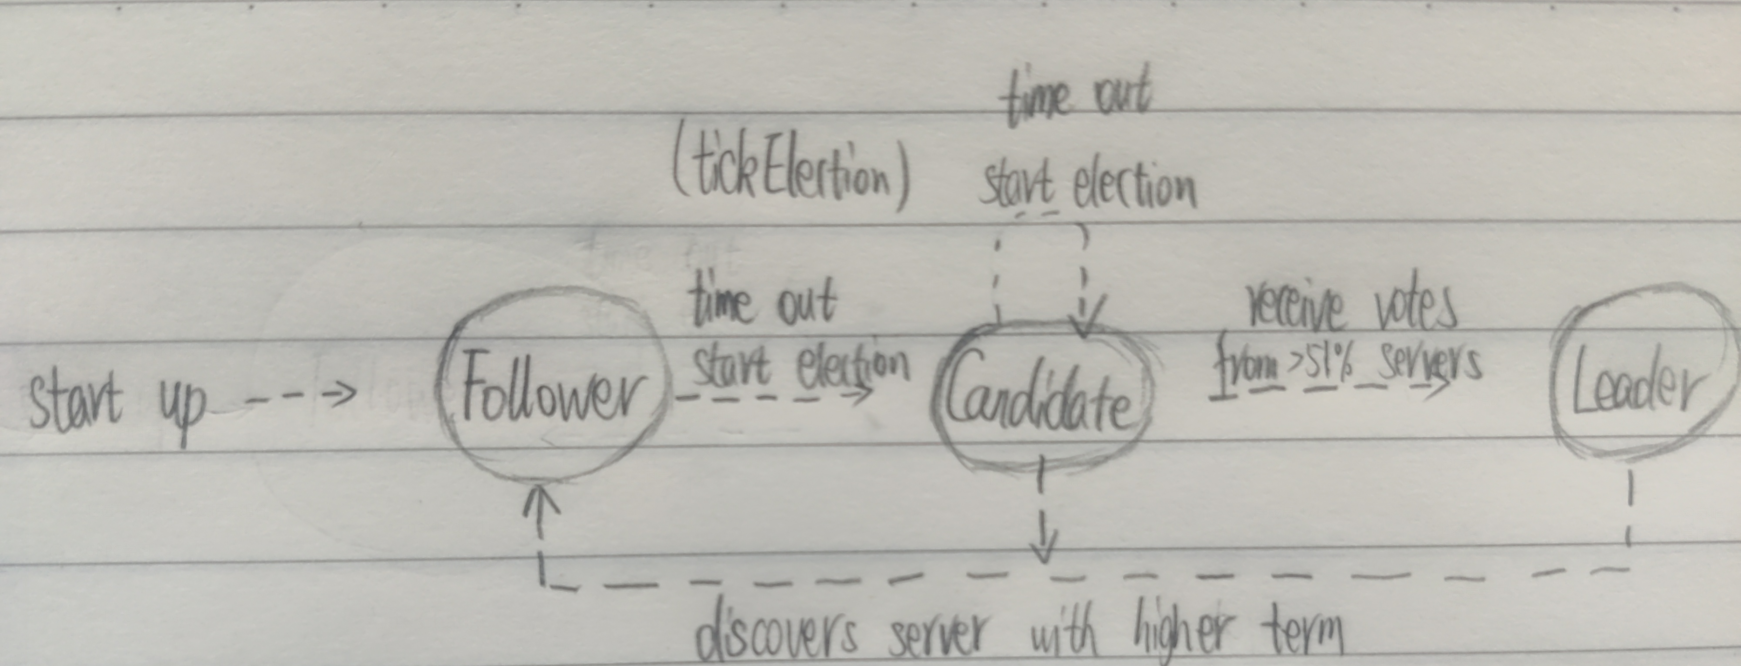 time out
(tickElection)
start election
time out
start election
receive votes
from >51% servers
start up
Follower
Candidate
Leader
discovers server with higher term